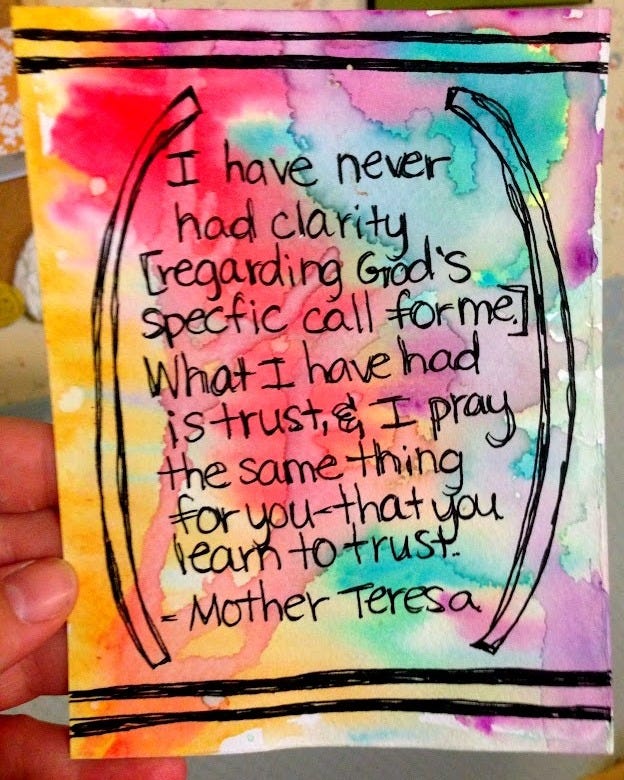 I have never
had clarity
[regarding God's
specfic call for me.]
What I have had
is trust, & I pray
the same thing
for you-that you
learn to trust..
- Mother Teresa